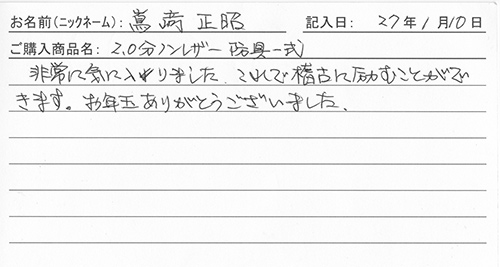 お名前(ニックネーム): 嵩﨑 正昭 記入日: 27年 1月10日
ご購入商品名: 2.0分ノンレザー 防具一式
非常に気に入りました。これで稽古に励むことがで
きます。お年玉ありがとうございました。